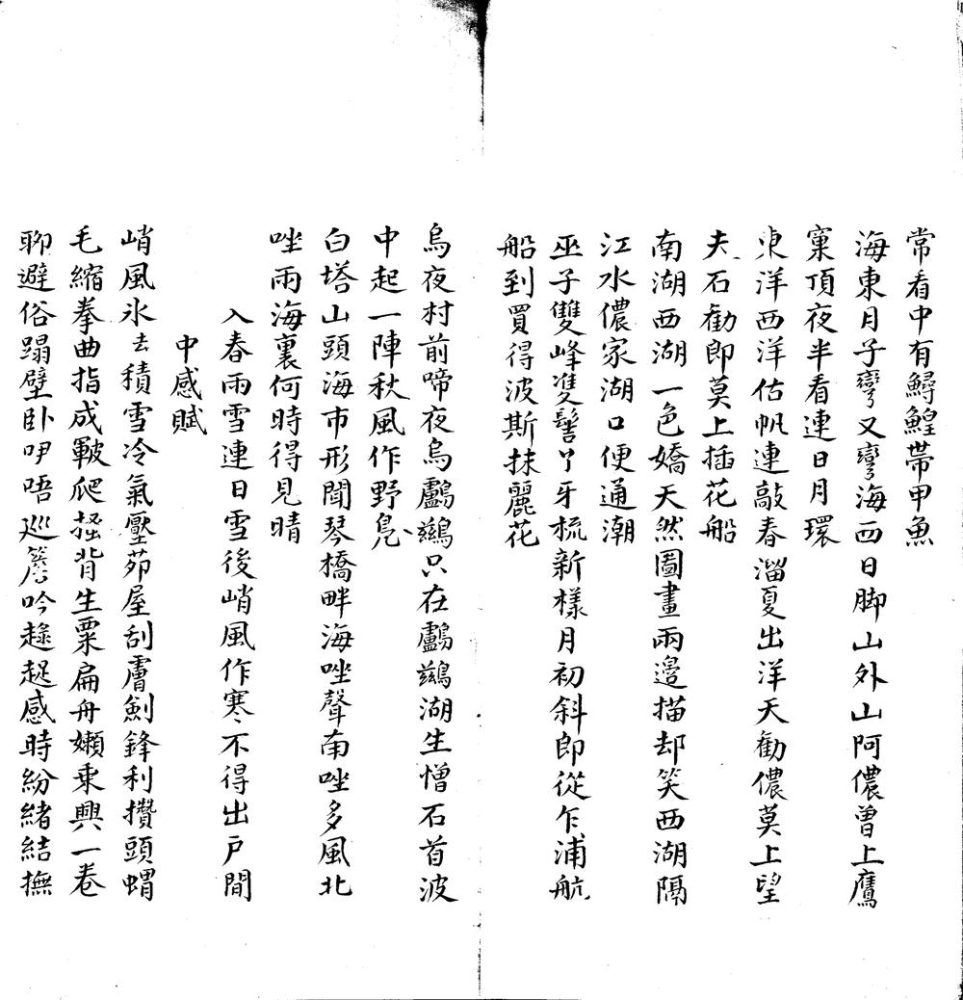 常看中有鱘鰉帶甲魚
海東月子彎又彎海西日脚山外山阿儂曾上鷹
窠頂夜半看連日月環
東洋西洋估帆連敲春溜夏出洋天勸儂莫上望
夫石勸郎莫上插花船
南湖西湖一色嬌天然圖畫兩邊描却笑西湖隔
江水儂家湖口便通潮
巫子雙峰隻髻丫牙梳新樣月初斜郎從乍浦航
船到買得波斯抹麗花
烏夜村前啼夜烏鸕鷀只在鸕鷀湖生憎石首波
中起一陣秋風作野鳧
白塔山頭海市形聞琴橋畔海唑聲南唑多風北
唑雨海裏何時得見晴
入春雨雪連日雪後峭風作寒不得出戶間
中感賦
峭風氷去積雪冷氣壓茆屋刮膚劍鋒利攢頭蝟
毛縮拳曲指成皸爬搔背生粟扁舟嬾乘興一卷
聊避俗蹋壁卧咿唔巡簷吟趦趄感時紛緒結撫